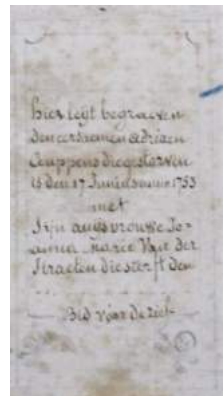 hier leyt begraeven
den eersaemen adriaen
Ceuppens die gestorven
is den 17 Juni 1753
met
sijn huysvrouwe Jo-
anna Marie Van der
Straeten die sterft den
Bid voor de ziel